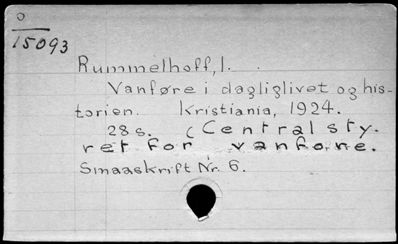 O
15093
Rummelhoff, I.
Vanføre i dagliglivet og his-
torien. Kristiania, 1924.
28 s. (Centralsty-
ret for vanføre.
Smaaskrift Nr. 6.